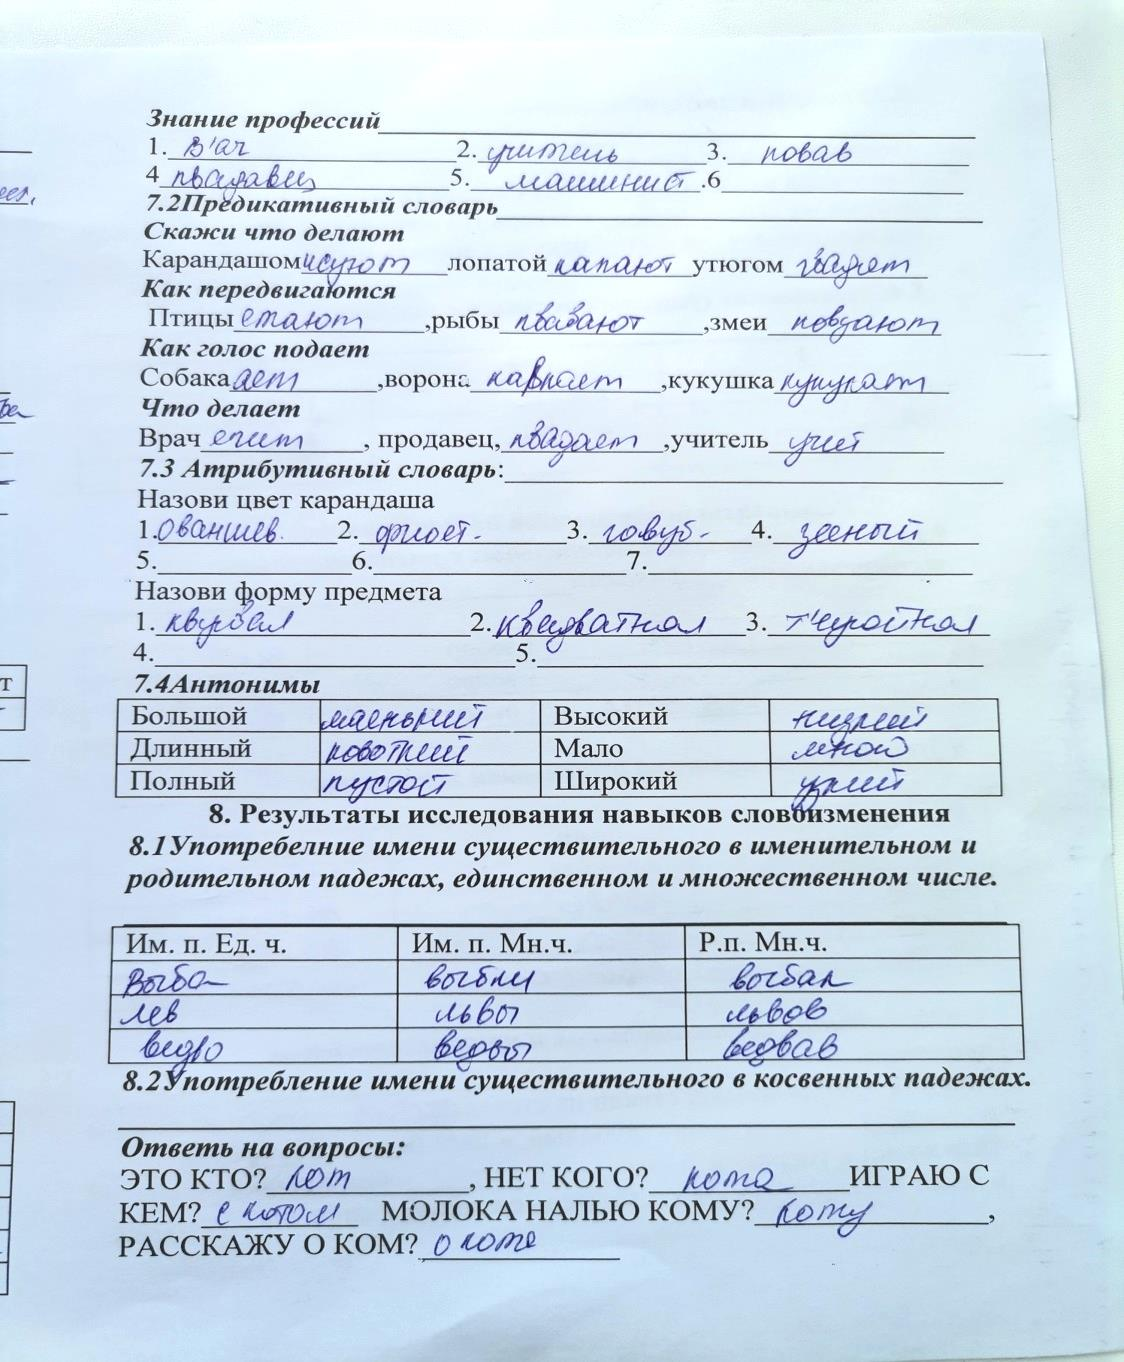 Знание профессий
1. в'ач 2. учитель 3. повав
4 пвадавец 5. машинист .6
7.2Предикативный словарь
Скажи что делают
Карандашом исуют лопатой капают утюгом гвадят
Как передвигаются
Птицы етают ,рыбы пвавают ,змеи повзают
Как голос подает
Собака ает ,ворона кавкает ,кукушка кукукает
Что делает
Врач ечит , продавец, пвадает ,учитель учит
7.3 Атрибутивный словарь:
Назови цвет карандаша
1. ованшев. 2. фиоет. 3. говуб. 4. зееный
5. 6. 7.
Назови форму предмета
1. квугвая 2. квадватная 3. т'еуойная
4. 5.
7.4Антонимы
Большой маенький Высокий низкий
Длинныйковоткий Мало мною
Полный пустой Широкий узкий
8. Результаты исследования навыков словоизменения
8.1Употребелние имени существительного в именительном и
родительном падежах, единственном и множественном числе.
Им. п. Ед. ч. Им. п. Мн.ч. Р.п. Мн.ч.
выба выбки выбак
лев львы львов
ведво ведвы ведвав
8.2Употребление имени существительного в косвенных падежах.
Ответь на вопросы:
ЭТО КТО? кот , НЕТ КОГО? кота ИГРАЮ С
КЕМ? с котом МОЛОКА НАЛЬЮ КОМУ? коту ,
РАССКАЖУ О КОМ? о коте